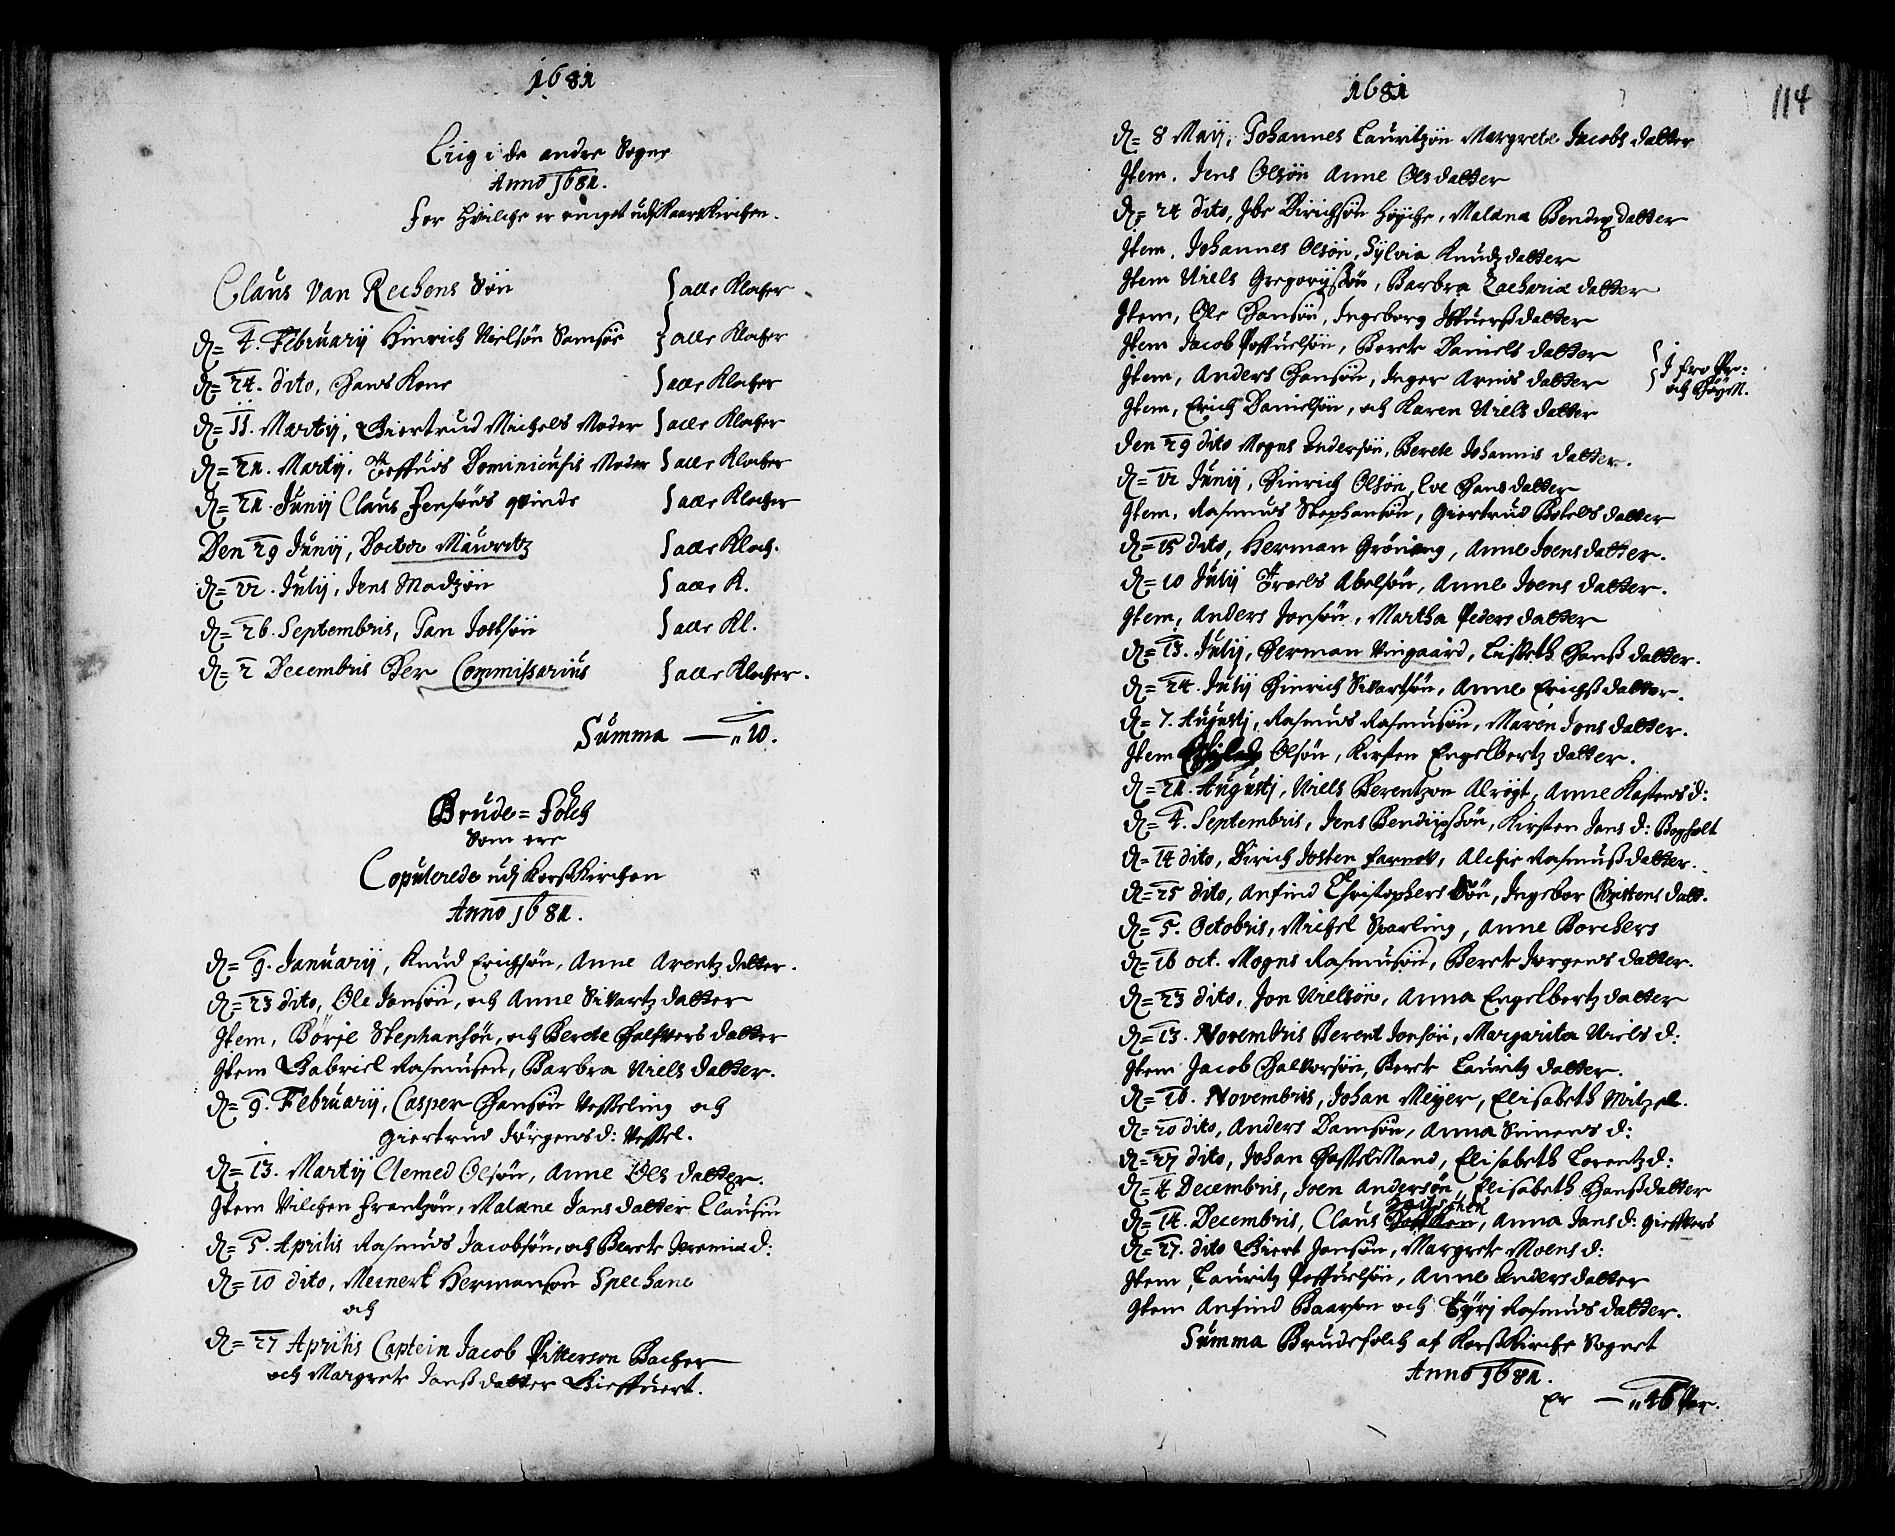 1681
Liig i de andre Sogne
Anno 1681.
for hvilche er ringet udj Kaars Kirchen.
Claus Van Rechens Søn } alle Klocher
D= 4. February Hinrich Nielsøn Samsøe } alle Klocher
D= 24. dito, Hans Kone } alle Klocher
D= 11. Martij, Giertrud Michels Moder } alle Klocher
D= 21. Martij, Dominicusis Moder } alle Klocher
D= 21. Junij Claus Jensøns qvinde } alle Klocher
Den 29 Junij, Doctor Mauritz } alle Kloch.
D= 12. Julij, Jens Madzøn } alle K.
D= 26. Septembris, Jan Jostsøn } alle Kl.
D= 2 Decembris Her Commissarius } alle Klocher.
Summa — 10.
Brude=Folch
Som ere
Copulerede udj Korss Kirchen
Anno 1681.
D= 9. January, Knud Erichsøn, Anne Arentz datter.
D= 23 dito, Ole Jonsøn, och Anne Sivartz datter
Item, Børje Stephansøn, och Berete Halfvers datter
Item Gabriel Rasmusen, Barbra Niels datter.
D= 9. February, Casper Hansøn Vesseling och
Giertrud Jørgens d: Vessel.
D= 13. Martij Clemed Olsøn, Anne Ols datter.
Item Vilchen Frantzøn, Malene Jans datter Clausin
D= 5. Aprilis Rasmus Jacobsøn, och Berete Jeremiæ d:
D= 10 dito, Meinert Hermanson Spechane
och
D= 27 Aprilis Captein Jacob Pitterson Bacher
och Margrete Janss datter Gieffuert.
1681
114
D= 8 Maij, Johannes Lauritzøn Margrete Jacobs datter
Item, Jens Olsøn Anne Ols datter
D= 24 dito, Ibe Dirichsøn Høyche, Malena Bendix datter
Item, Johannes Olsøn, Sylvia Knudz datter
Item Niels Gregorijssøn, Barbra Zachariæ datter
Item, Ole Hansøn, Ingeborg datter
Item Jacob Poffuelsøn, Berete Daniels datter
Item, Anders Hansøn, Inger Arnis datter } J fro Pr:
och HøyM.
Item, Erich Danielsøn, och Karen Niels datter
Den 29 dito Mogns Andersøn, Berete Johannis datter.
D= 12 Junij, Hinrich Olsøn, Eve Hans datter
Item, Rasmus Stephansøn, Giertrud Botels datter
D= 15 dito, Herman Grøning, Anne Joens datter.
D= 10 Julij Troels Abelsøn, Anne Joens datter.
Item, Anders Jonsøn, Martha Peders datter
D= 13. Julij, Herman Vingaard, Lisbeth Hanss datter.
D= 24. Julij Hinrich Sivartsøn, Anne Erichss datter.
D= 7. Augustj, Rasmus Rasmusøn, Maren Jons datter.
Item Olsøn, Kirsten Engelbertz datter.
D= 21. Augustj, Niels Berentzon Alrögt, Anne Kastens d:
D= 4. Septembris, Jens Bendixssøn, Kirsten Jans d: Bogholt
D= 14 dito, Dirich Josten Farnov, Alchie Rasmuss datter.
D= 25 dito, Anfind Christophers Søn, Ingebor Christens datt.
D= 5. Octobris, Michel Sparling, Anne Borchers
D= 16 oct. Mogns Rasmusøn, Berete Jørgens datter.
D= 23 dito, Jon Nielsøn, Anna Engelbertz datter
D= 13. Novembris Berent Jonsøn, Margarita Niels d:
Item Jacob Halvorsøn, Berete Lauritz datter.
D= 16. Novembris, Johan Meyer, Elisabeth Mitzel.
D= 20 dito, Anders Damsøn, Anna Simens d:
D= 27 dito, Johan Hasselmand, Elisabeth Lorentz d:
D= 4 Decembris, Joen Andersøn, Elisabeth Hanss datter
D= 14. Decembris, Claus Anna Jans d: Gieffers
D= 27. dito Giert Jansøn, Margrete Moens d:
Item, Lauritz Poffuelsøn, Anne Anders datter
Item Anfind Baarson och Tyri Rasmus datter.
Summa Brudefolch af Korss Kirche Sognet
Anno 1681.
er — 46 Par.